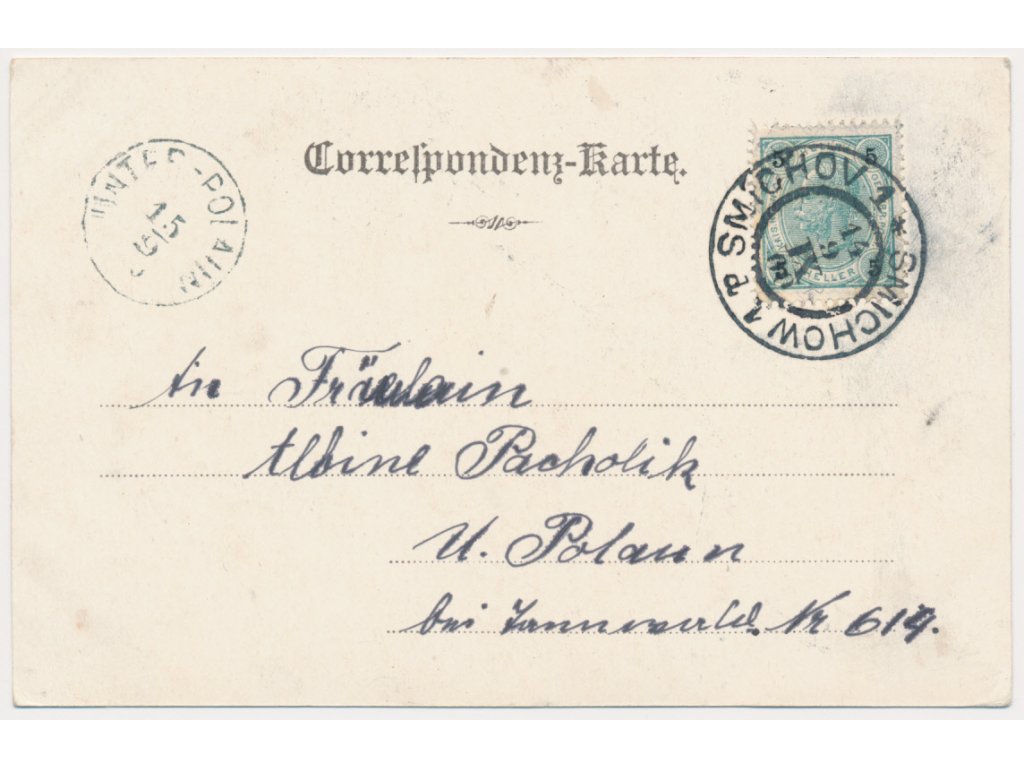 Correspondenz-Karte.
UNTER-POLAUN
15
9
5 5
HELLER
5
SMICHOV 1 * SMICHOW 1
14
9
An Fräulein
Albine Pacholik
U. Polaun
bei Tannwald. Nr 619.